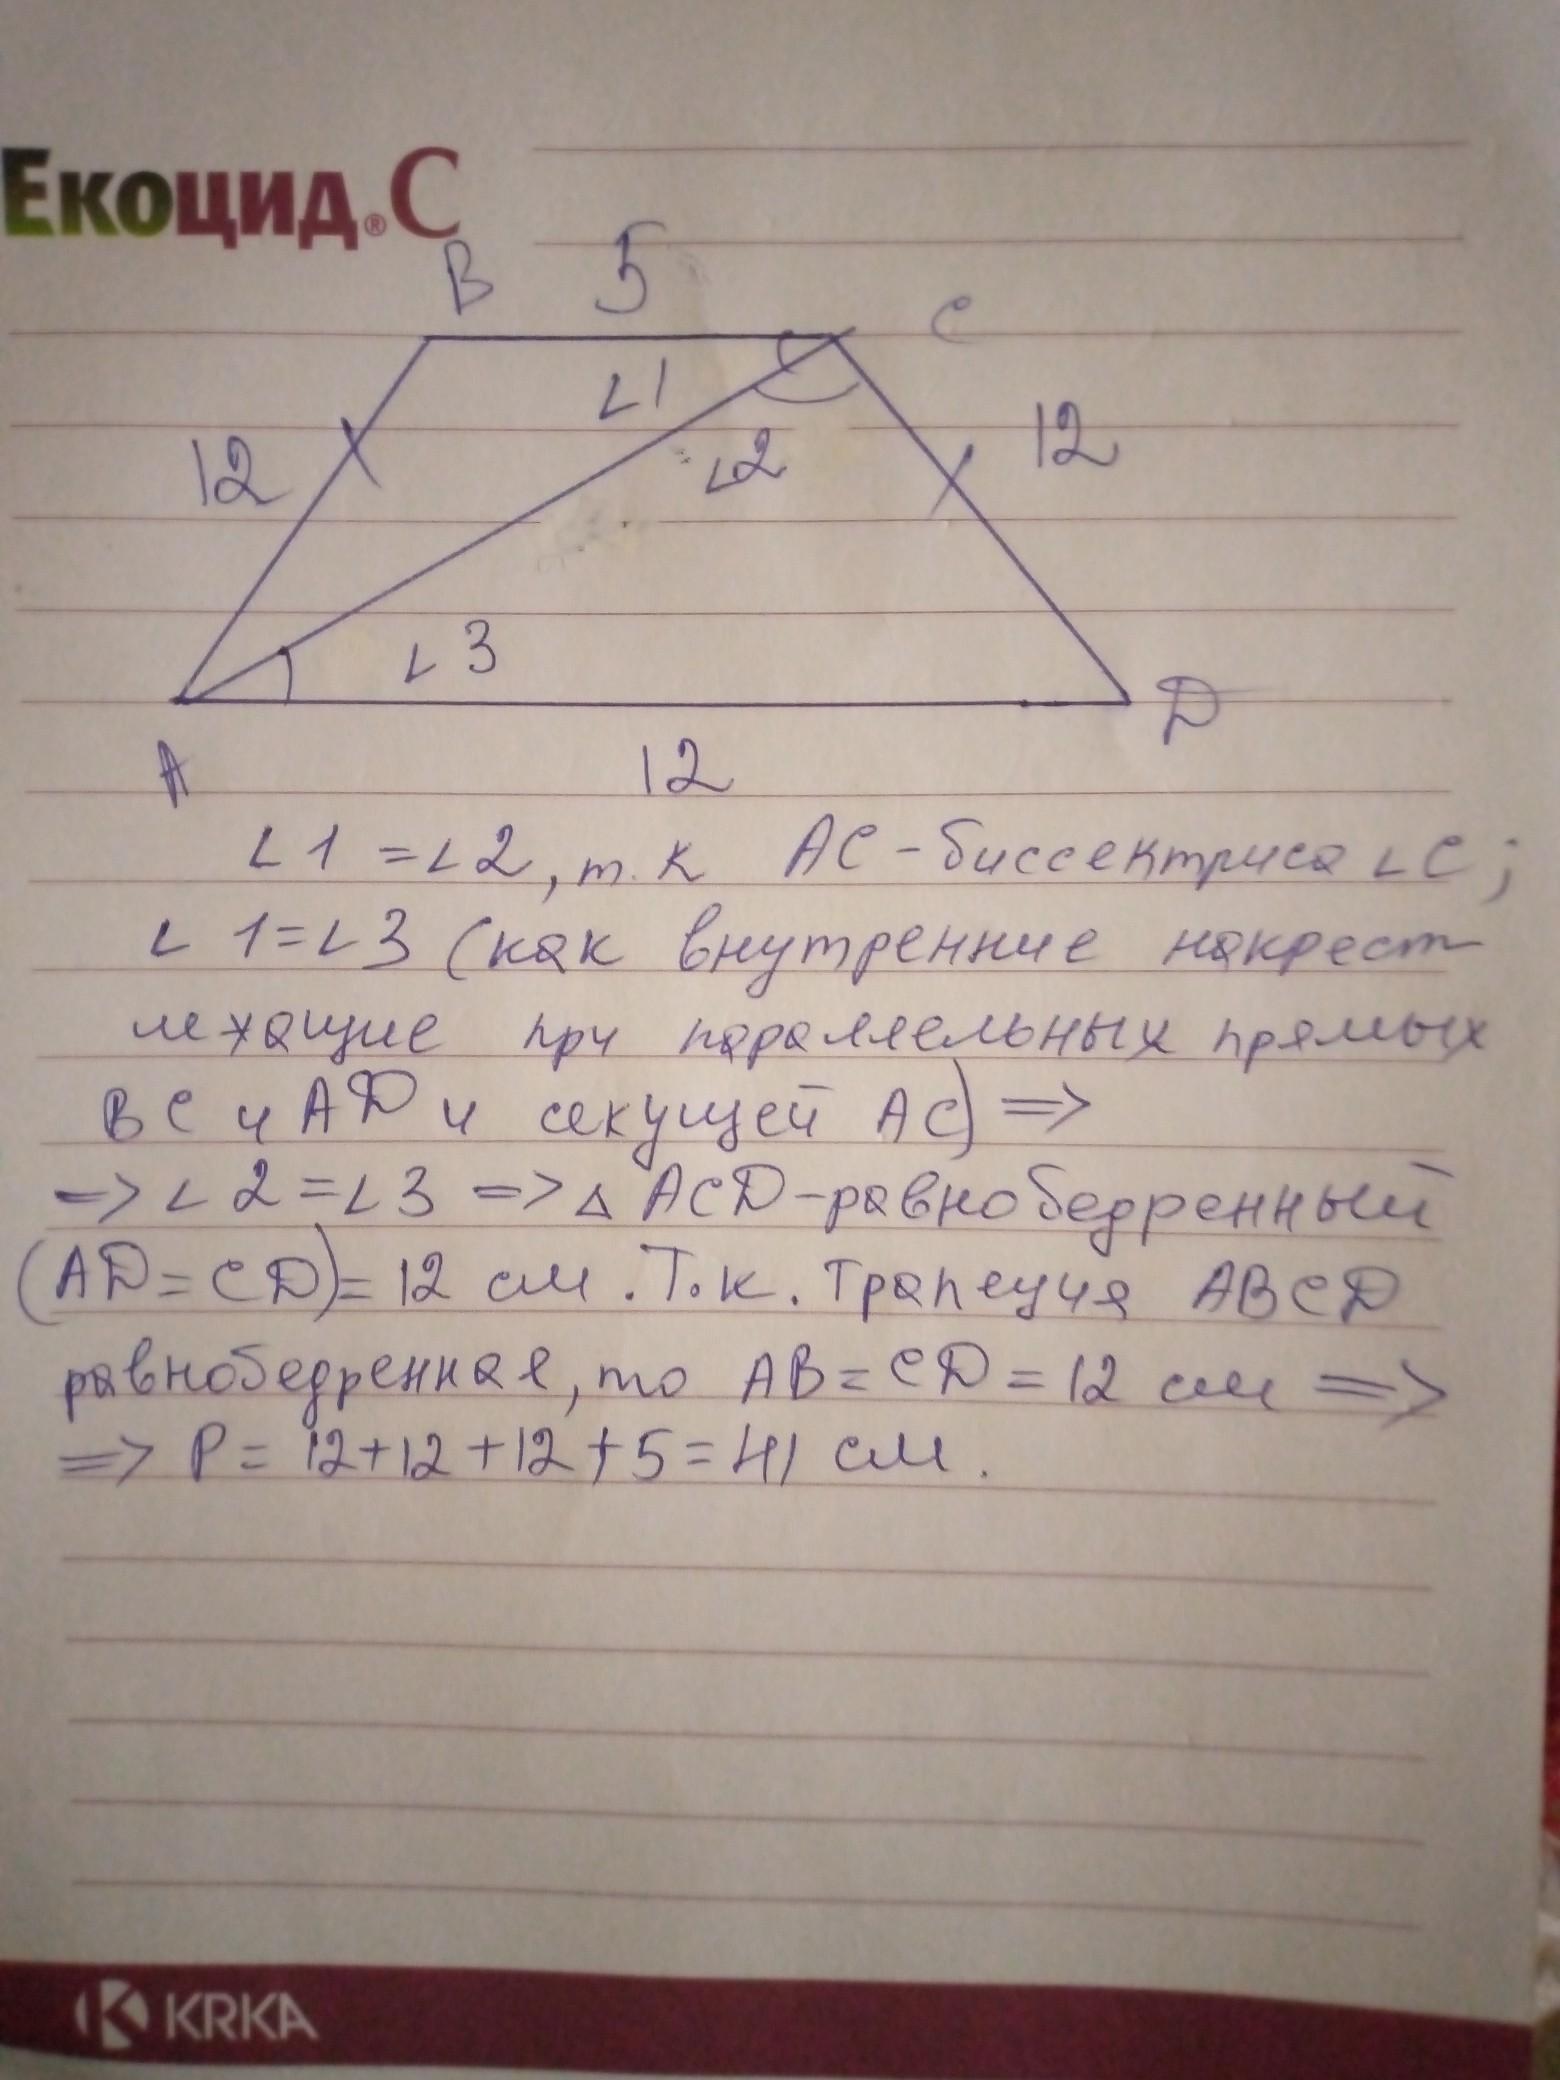 Екоцид® С
B 5 C
∠1
12
∠2
12
∠3
A
12
D
∠1 = ∠2, т.к AC - биссектриса ∠C;
∠ 1 = ∠3 (как внутренние накрест
лежащие при параллельных прямых
BC и AD и секущей AC) =>
=> ∠ 2 = ∠3 => △ ACD - равнобедренный
(AD = CD) = 12 см. Т.к. трапеция ABCD
равнобедренная, то AB = CD = 12 см =>
=> P = 12 + 12 + 12 + 5 = 41 см.
KRKA